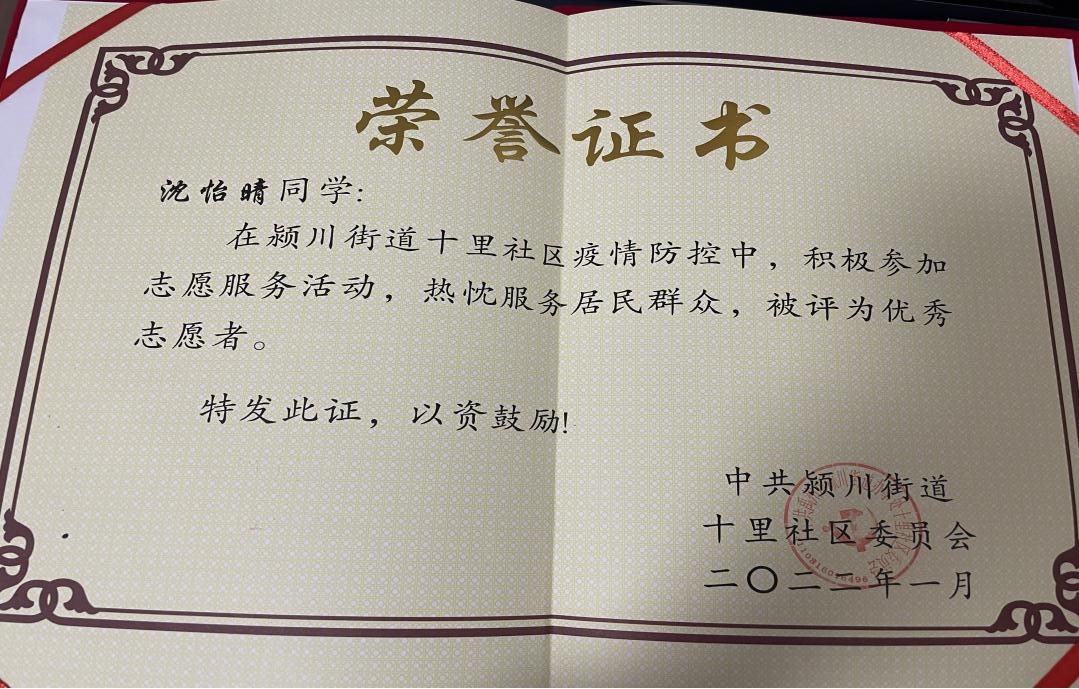 荣誉证书
沈怡晴同学:
在颍川街道十里社区疫情防控中，积极参加
志愿服务活动，热忱服务居民群众，被评为优秀
志愿者。
特发此证，以资鼓励!
中共颍川街道
十里社区委员会
二〇二二年一月